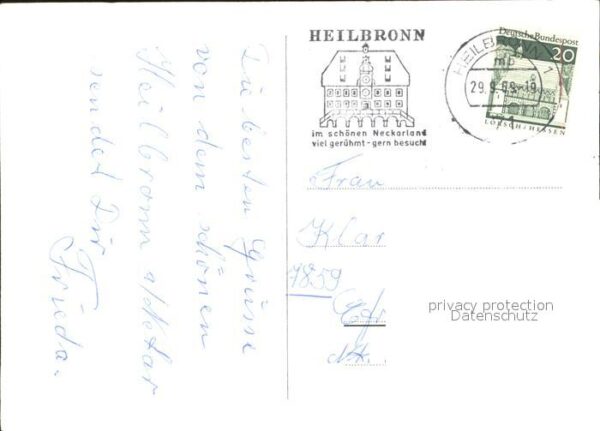 HEILBRONN
im schönen Neckarland
viel gerühmt - gern besucht
HEILBRONN 1
mb
29.9.69-18
Deutsche Bundespost
20
LORSCH/HESSEN
Die besten Grüsse
von dem schönen
Heilbronn a/Neckar
sendet Dir
Frieda.
Frau
Klar
7859
privacy protection
Datenschutz